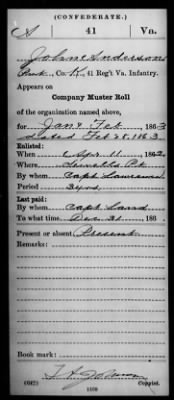 (CONFEDERATE.)
A 41 Va.
John Anderson
Pvt., Co. K, 41 Reg't Va. Infantry.
Appears on
Company Muster Roll
of the organization named above,
for Jan & Feb, 1863
dated Feb 28, 1863
Enlisted:
When Apr 11, 1862
Where Sewells Pt
By whom Capt Lawrence
Period 3 yrs
Last paid:
By whom Capt Land
To what time Dec 31, 186
Present or absent Present
Remarks:
Book mark:
(642) Copyist.